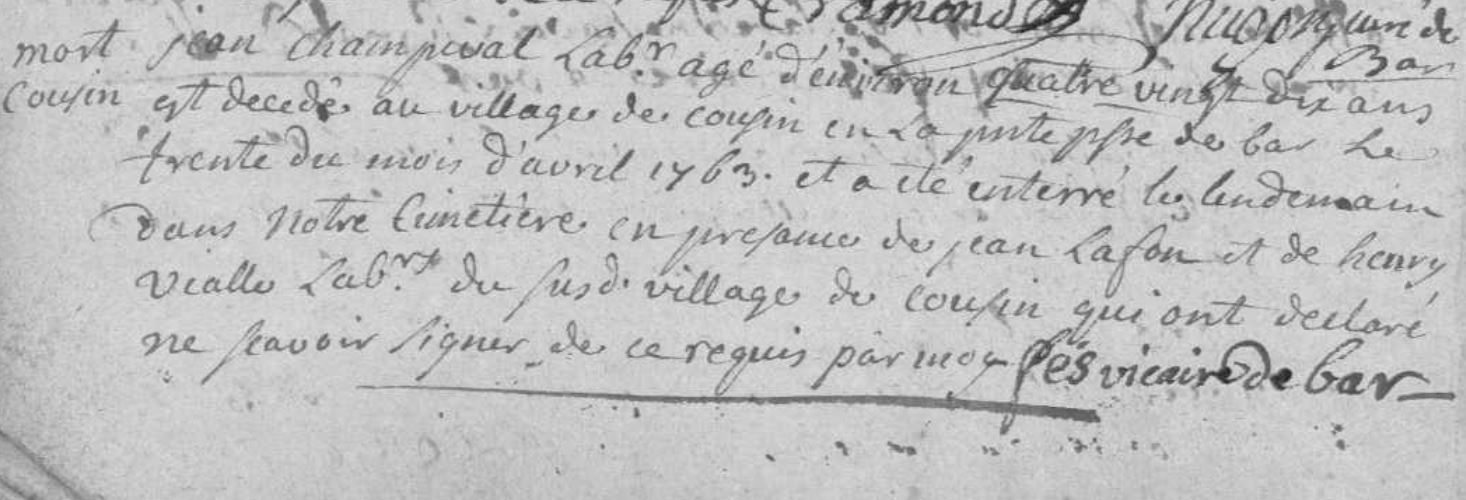 curé de
Bar
mort jean Champeval Lab.r agé d'environ quatre vingt dix ans
Cousin est decedé au village de cousin en La pnte psse de bar Le
trente du mois d'avril 1763. et a eté enterré le lendemain
dans Notre Cimetiere en presance de jean Lafon et de henry
vialle Lab.rs du susd. village de cousin qui ont declaré
ne scavoir signer de ce requis par moy vicaire de bar